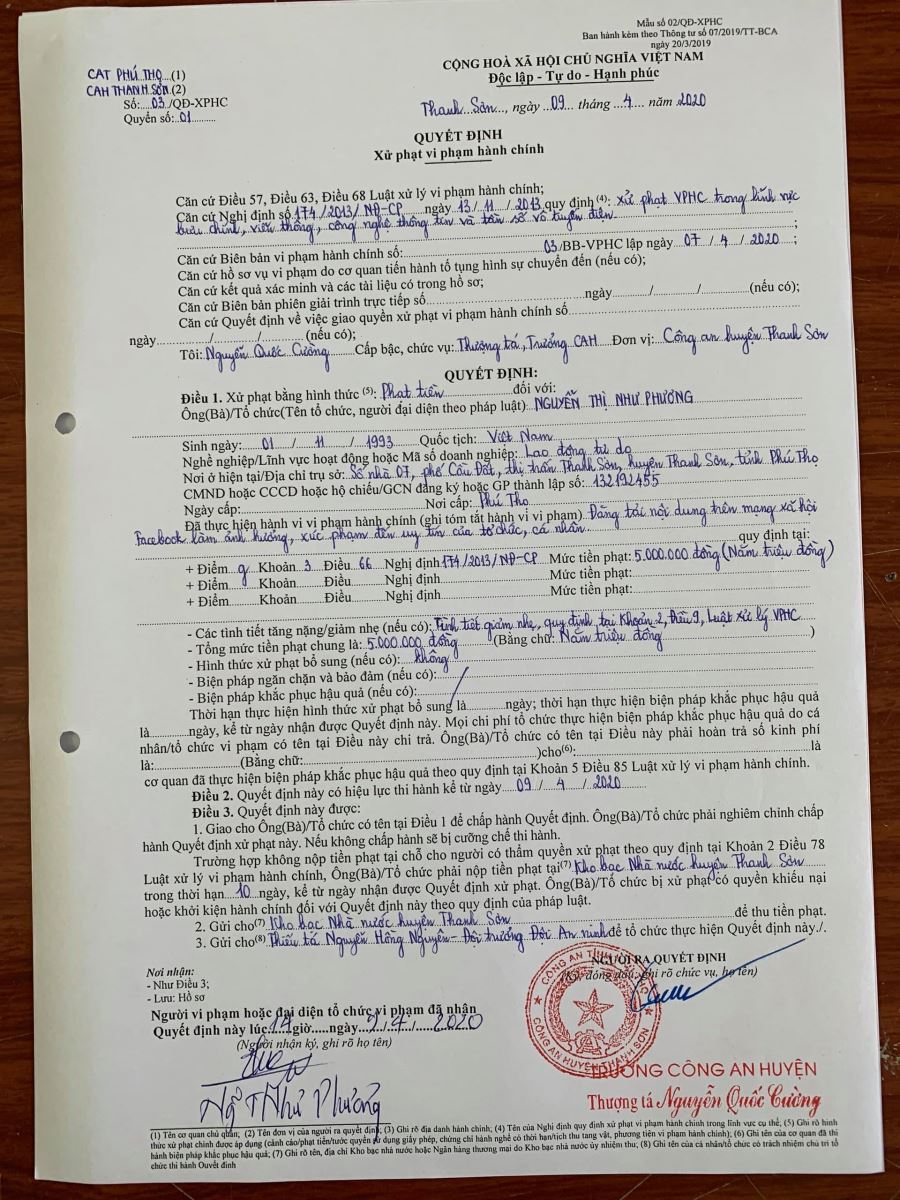 Mẫu số 02/QĐ-XPHC
Ban hành kèm theo Thông tư số 07/2019/TT-BCA
ngày 20/3/2019
CAT PHÚ THỌ (1)
CAH THANH SƠN (2)
Số: 03 /QĐ-XPHC
Quyển số: 01
CỘNG HOÀ XÃ HỘI CHỦ NGHĨA VIỆT NAM
Độc lập - Tự do - Hạnh phúc
Thanh Sơn, ngày 09 tháng 4 năm 2020
QUYẾT ĐỊNH
Xử phạt vi phạm hành chính
Căn cứ Điều 57, Điều 63, Điều 68 Luật xử lý vi phạm hành chính;
Căn cứ Nghị định số 174/2013/NĐ-CP ngày 13/11/2013 quy định (4): xử phạt VPHC trong lĩnh vực
bưu chính, viễn thông, công nghệ thông tin và tần số vô tuyến điện ;
Căn cứ Biên bản vi phạm hành chính số: 03/BB-VPHC lập ngày 07 / 4 / 2020 ;
Căn cứ hồ sơ vụ vi phạm do cơ quan tiến hành tố tụng hình sự chuyển đến (nếu có);
Căn cứ kết quả xác minh và các tài liệu có trong hồ sơ;
Căn cứ Biên bản phiên giải trình trực tiếp số............ngày........../........./..........(nếu có);
Căn cứ Quyết định về việc giao quyền xử phạt vi phạm hành chính số............
ngày........./........./..........(nếu có);
Tôi: Nguyễn Quốc Cường Cấp bậc, chức vụ: Thượng tá, Trưởng CAH Đơn vị: Công an huyện Thanh Sơn
QUYẾT ĐỊNH:
Điều 1. Xử phạt bằng hình thức (5): Phạt tiền đối với:
Ông(Bà)/Tổ chức(Tên tổ chức, người đại diện theo pháp luật) NGUYỄN THỊ NHƯ PHƯƠNG
Sinh ngày: 01 / 11 / 1993 Quốc tịch: Việt Nam
Nghề nghiệp/Lĩnh vực hoạt động hoặc Mã số doanh nghiệp: Lao động tự do
Nơi ở hiện tại/Địa chỉ trụ sở: Số nhà 07, phố Cầu Đất, thị trấn Thanh Sơn, huyện Thanh Sơn, tỉnh Phú Thọ
CMND hoặc CCCD hoặc hộ chiếu/GCN đăng ký hoặc GP thành lập số: 132192455
Ngày cấp:............Nơi cấp: Phú Thọ
Đã thực hiện hành vi vi phạm hành chính (ghi tóm tắt hành vi vi phạm) Đăng tải nội dung trên mạng xã hội
Facebook làm ảnh hưởng, xúc phạm đến uy tín của tổ chức, cá nhân quy định tại:
+ Điểm g Khoản 3 Điều 66 Nghị định 174/2013/NĐ-CP Mức tiền phạt: 5.000.000 đồng (Năm triệu đồng)
+ Điểm.........Khoản.........Điều.........Nghị định............Mức tiền phạt:............
+ Điểm.........Khoản.........Điều.........Nghị định............Mức tiền phạt:............
- Các tình tiết tăng nặng/giảm nhẹ (nếu có): Tình tiết giảm nhẹ, quy định tại Khoản 2, Điều 9, Luật Xử lý VPHC
- Tổng mức tiền phạt chung là: 5.000.000 đồng (Bằng chữ: Năm triệu đồng )
- Hình thức xử phạt bổ sung (nếu có): không
- Biện pháp ngăn chặn và bảo đảm (nếu có):............
- Biện pháp khắc phục hậu quả (nếu có):............
Thời hạn thực hiện hình thức xử phạt bổ sung là.........ngày; thời hạn thực hiện biện pháp khắc phục hậu quả
là.........ngày, kể từ ngày nhận được Quyết định này. Mọi chi phí tổ chức thực hiện biện pháp khắc phục hậu quả do cá
nhân/tổ chức vi phạm có tên tại Điều này chi trả. Ông(Bà)/Tổ chức có tên tại Điều này phải hoàn trả số kinh phí
là:............(Bằng chữ:............)cho(6):............là
cơ quan đã thực hiện biện pháp khắc phục hậu quả theo quy định tại Khoản 5 Điều 85 Luật xử lý vi phạm hành chính.
Điều 2. Quyết định này có hiệu lực thi hành kể từ ngày 09 / 4 / 2020
Điều 3. Quyết định này được:
1. Giao cho Ông(Bà)/Tổ chức có tên tại Điều 1 để chấp hành Quyết định. Ông(Bà)/Tổ chức phải nghiêm chỉnh chấp
hành Quyết định xử phạt này. Nếu không chấp hành sẽ bị cưỡng chế thi hành.
Trường hợp không nộp tiền phạt tại chỗ cho người có thẩm quyền xử phạt theo quy định tại Khoản 2 Điều 78
Luật xử lý vi phạm hành chính, Ông(Bà)/Tổ chức phải nộp tiền phạt tại(7) Kho bạc Nhà nước huyện Thanh Sơn
trong thời hạn 10 ngày, kể từ ngày nhận được Quyết định xử phạt. Ông(Bà)/Tổ chức bị xử phạt có quyền khiếu nại
hoặc khởi kiện hành chính đối với Quyết định này theo quy định của pháp luật.
2. Gửi cho(7) Kho bạc Nhà nước huyện Thanh Sơn để thu tiền phạt.
3. Gửi cho(8) Thiếu tá Nguyễn Hồng Nguyên - Đội trưởng Đội An ninh để tổ chức thực hiện Quyết định này./.
Nơi nhận:
- Như Điều 3;
- Lưu: Hồ sơ
Người vi phạm hoặc đại diện tổ chức vi phạm đã nhận
Quyết định này lúc 14 giờ.....ngày 9 / 4 / 2020
(Người nhận ký, ghi rõ họ tên)
Ng T Như Phương
NGƯỜI RA QUYẾT ĐỊNH
(Ký, đóng dấu, ghi rõ chức vụ, họ tên)
CÔNG AN TỈNH
CÔNG AN HUYỆN THANH SƠN
TRƯỞNG CÔNG AN HUYỆN
Thượng tá Nguyễn Quốc Cường
(1) Tên cơ quan chủ quản; (2) Tên đơn vị của người ra quyết định; (3) Ghi rõ địa danh hành chính; (4) Tên của Nghị định quy định xử phạt vi phạm hành chính trong lĩnh vực cụ thể; (5) Ghi rõ hình
thức xử phạt chính được áp dụng (cảnh cáo/phạt tiền/tước quyền sử dụng giấy phép, chứng chỉ hành nghề có thời hạn/tịch thu tang vật, phương tiện vi phạm hành chính); (6) Ghi tên của cơ quan đã thi
hành biện pháp khắc phục hậu quả; (7) Ghi rõ tên, địa chỉ Kho bạc nhà nước hoặc Ngân hàng thương mại do Kho bạc nhà nước ủy nhiệm thu; (8) Ghi tên của cá nhân/tổ chức có trách nhiệm chủ trì tổ
chức thi hành Quyết định